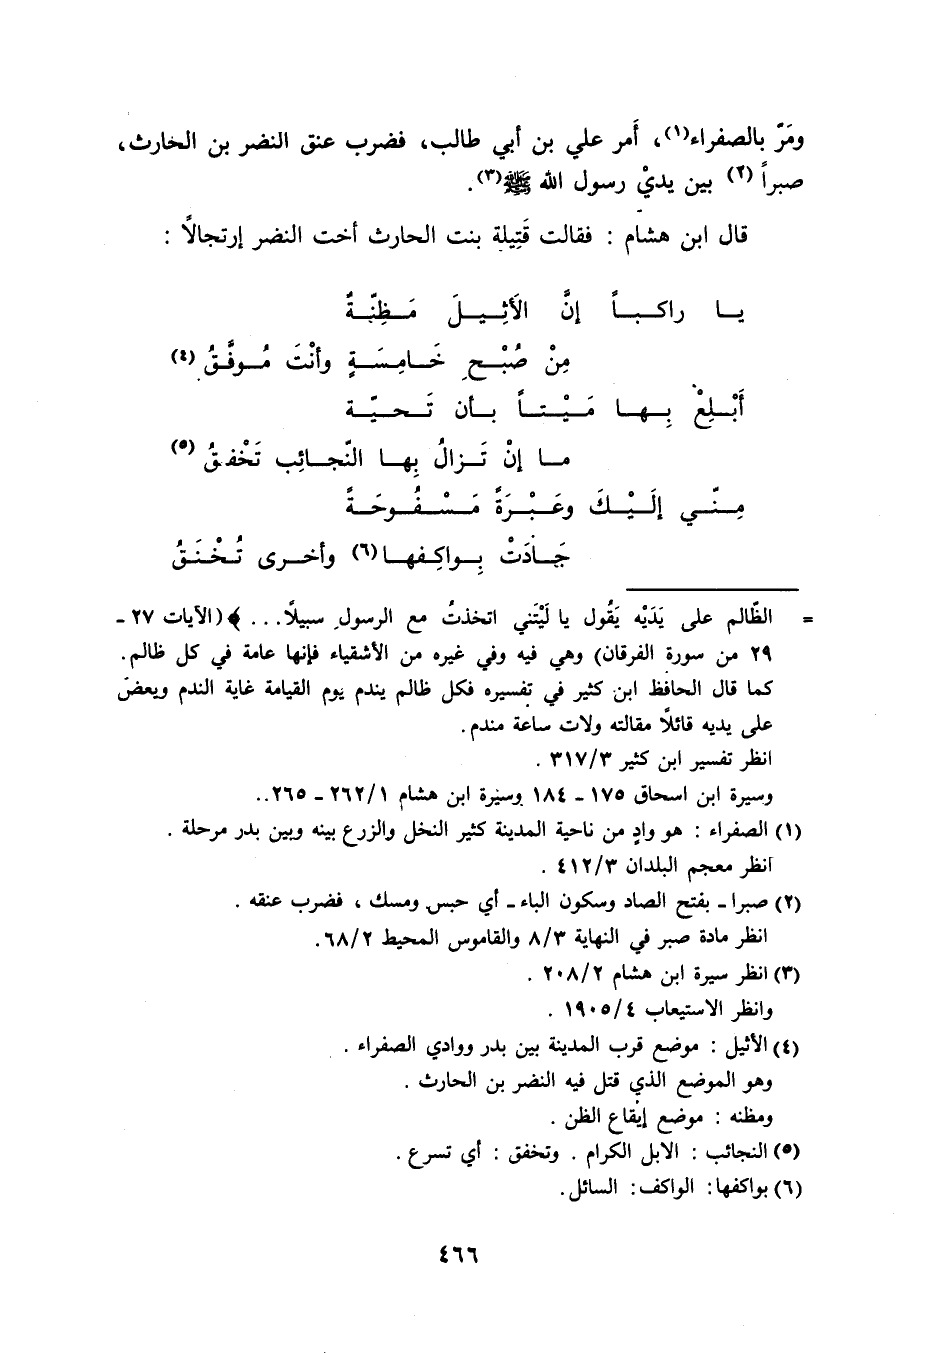 ومَرّ بالصفراء(١)، أَمر علي بن أبي طالب، فضرب عنق النضر بن الحارث،
صبراً (٢) بين يديْ رسول الله ﷺ(٣).
قال ابن هشام : فقالت قَتِيلة بنت الحارث أخت النضر إرتجالاً :
يـا راكـبـاً إنَّ الأَثِـيـلَ مَـظِنّـةٌ
مِنْ صُبْـحِ خَـامِسَـةٍ وأنْتَ مُـوفَّـقُ (٤)
أَبْـلِغْ بِـهـا مَـيْـتـاً بـأن تَـحـيّـة
مـا إنْ تَـزالُ بِهـا النّجـائِب تَخْفقُ (٥)
مِـنّـي إلَـيْـكَ وعَـبْـرَةً مَـسْـفُـوحَـةً
جَـادَتْ بِـواكِفهـا(٦) وأخـرى تُـخْـنَـقُ
= الظّالم على يَدَيْه يَقُول يا لَيْتَني اتخذتُ مع الرسول سبيلًا... ﴾ (الآيات ٢٧ -
٢٩ من سورة الفرقان) وهي فيه وفي غيره من الأشقياء فإنها عامة في كل ظالم.
كما قال الحافظ ابن كثير في تفسيره فكل ظالم يندم يوم القيامة غاية الندم ويعض
على يديه قائلًا مقالته ولات ساعة مندم.
انظر تفسير ابن كثير ٣١٧/٣ .
وسيرة ابن اسحاق ١٧٥ - ١٨٤ وسيرة ابن هشام ٢٦٢/١ - ٢٦٥..
(١) الصفراء : هو وادٍ من ناحية المدينة كثير النخل والزرع بينه وبين بدر مرحلة .
انظر معجم البلدان ٤١٢/٣ .
(٢) صبرا - بفتح الصاد وسكون الباء - أي حبس ومسك ، فضرب عنقه .
انظر مادة صبر في النهاية ٨/٣ والقاموس المحيط ٦٨/٢.
(٣) انظر سيرة ابن هشام ٢٠٨/٢ .
وانظر الاستيعاب ١٩٠٥/٤ .
(٤) الأثيل : موضع قرب المدينة بين بدر ووادي الصفراء .
وهو الموضع الذي قتل فيه النضر بن الحارث .
ومظنه : موضع إيقاع الظن .
(٥) النجائب : الابل الكرام . وتخفق : أي تسرع .
(٦) بواكفها: الواكف: السائل.
٤٦٦